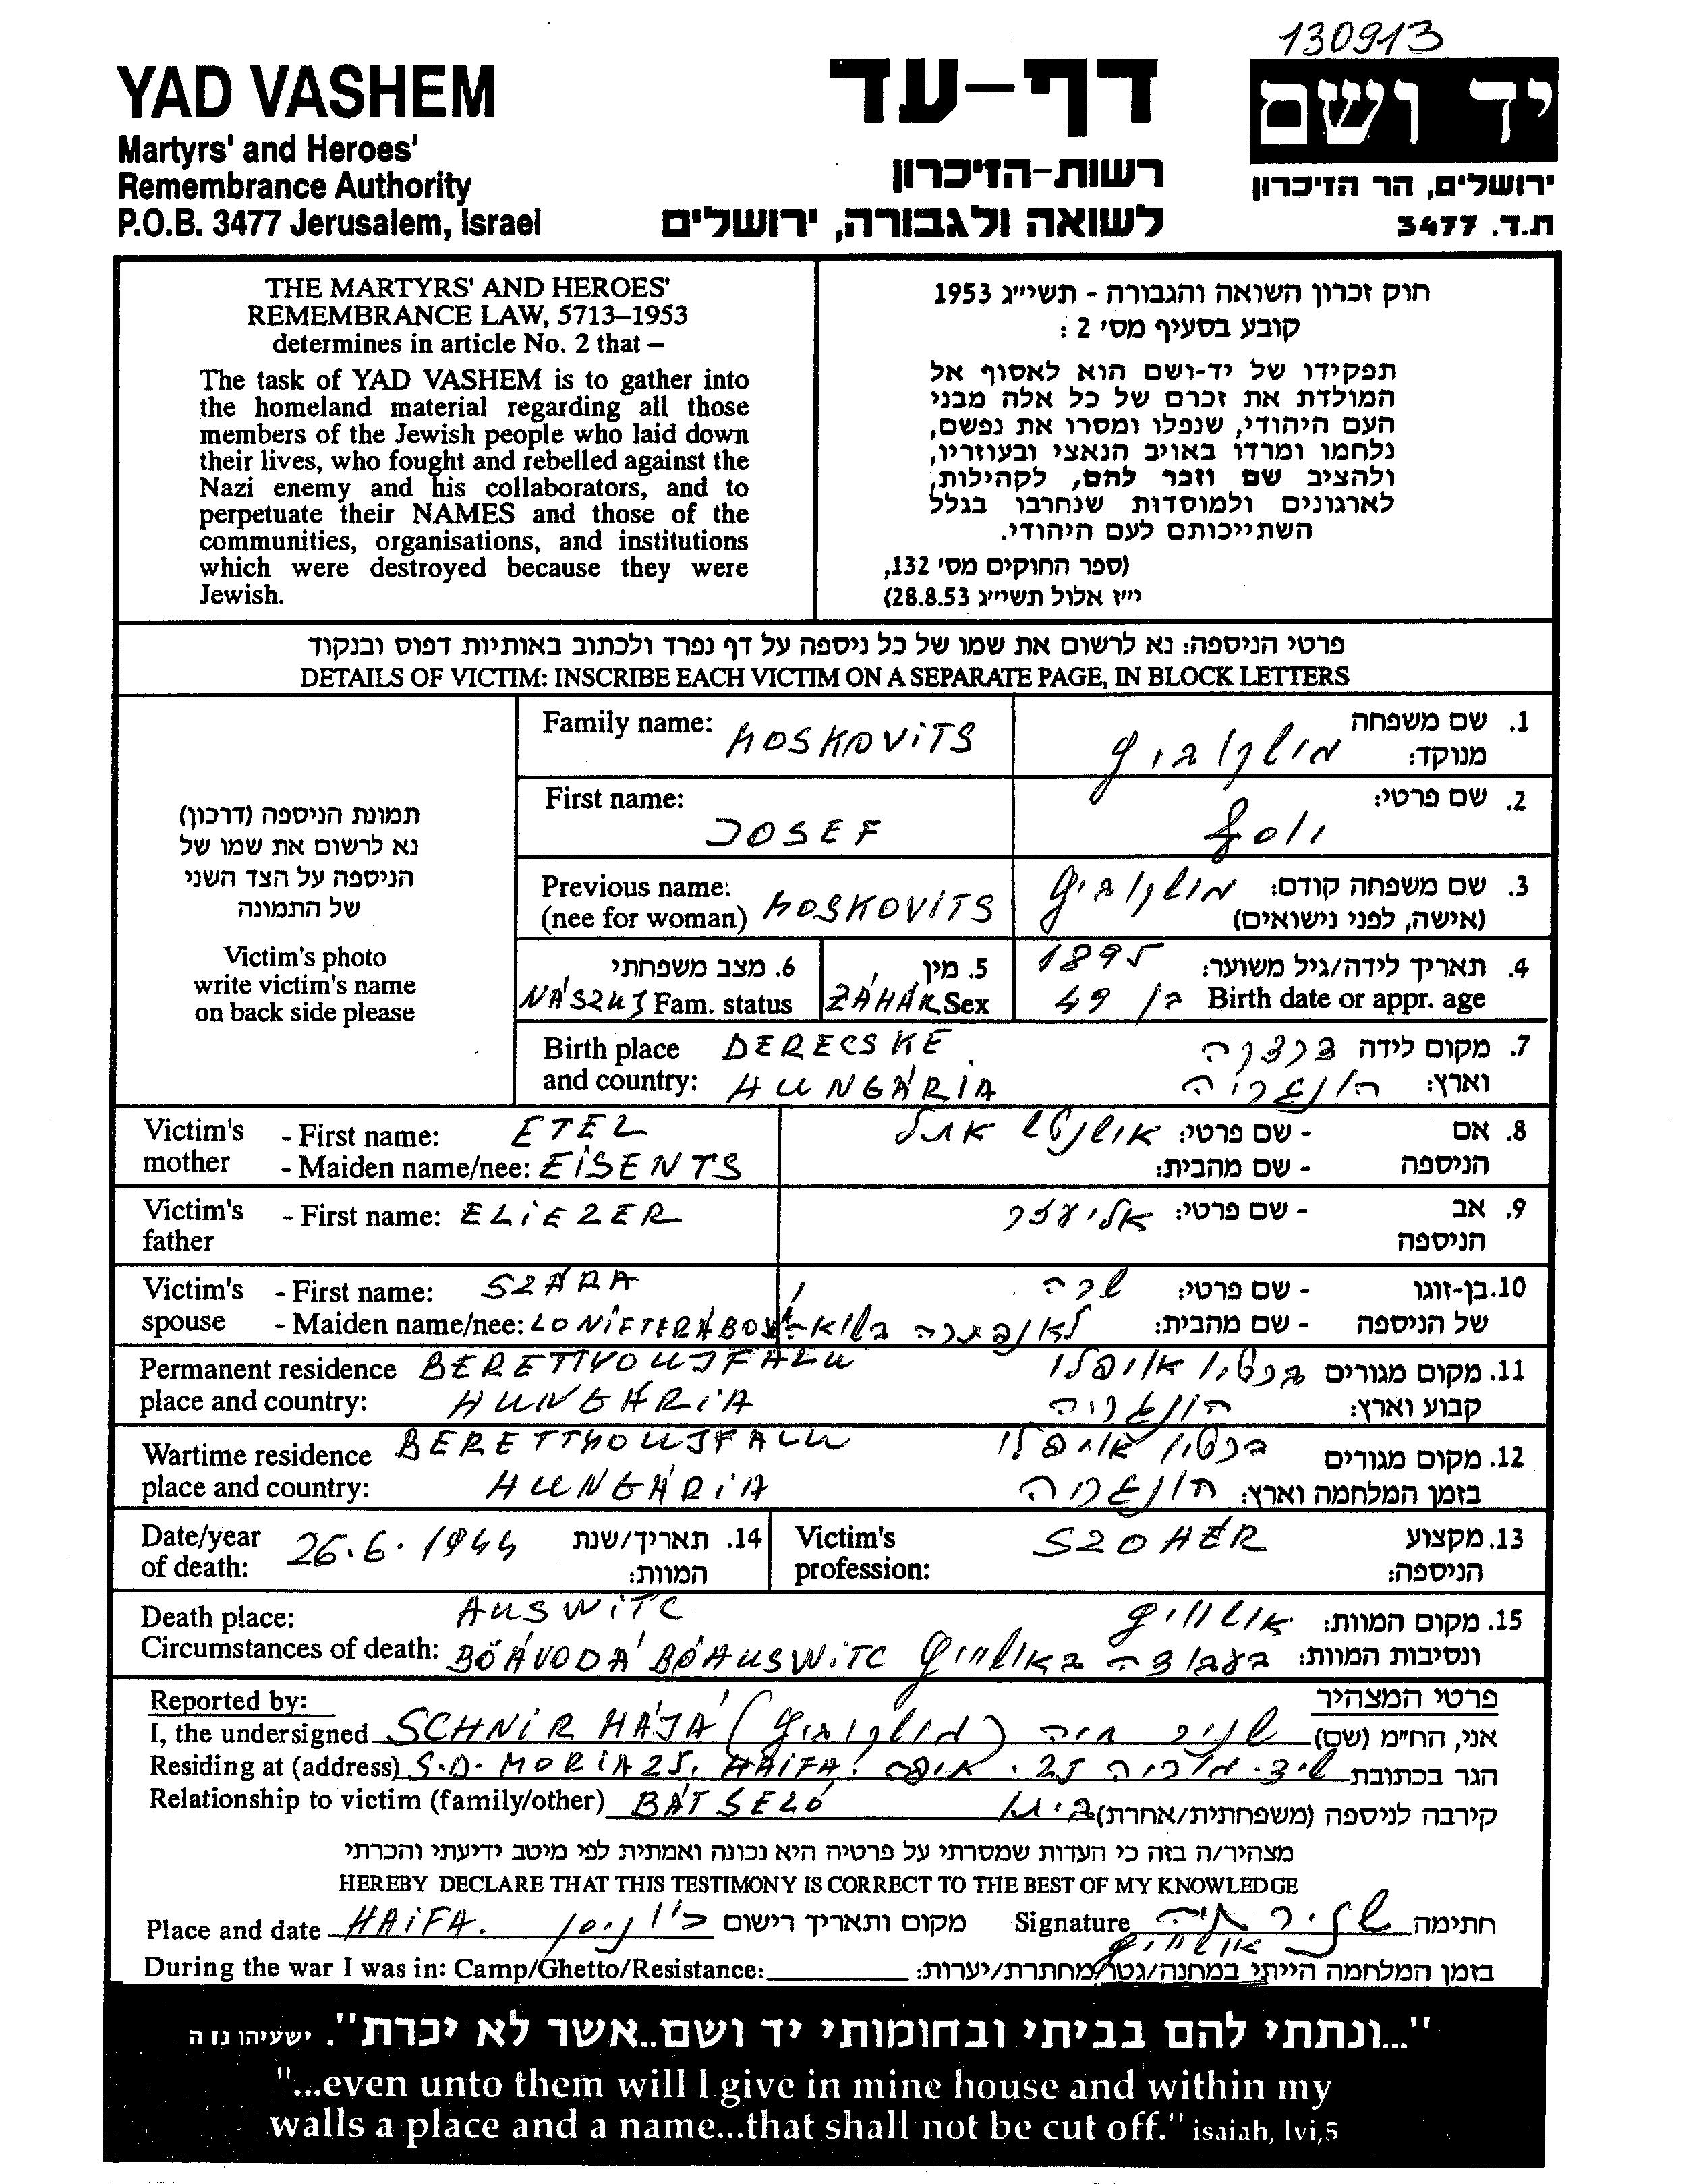 130913
YAD VASHEM
Martyrs' and Heroes'
Remembrance Authority
P.O.B. 3477 Jerusalem, Israel
דף-עד
רשות-הזיכרון
לשואה ולגבורה, ירושלים
יד ושם
ירושלים, הר הזיכרון
ת.ד. 3477
THE MARTYRS' AND HEROES'
REMEMBRANCE LAW, 5713–1953
determines in article No. 2 that –
The task of YAD VASHEM is to gather into
the homeland material regarding all those
members of the Jewish people who laid down
their lives, who fought and rebelled against the
Nazi enemy and his collaborators, and to
perpetuate their NAMES and those of the
communities, organisations, and institutions
which were destroyed because they were
Jewish.
חוק זכרון השואה והגבורה - תשי״ג 1953
קובע בסעיף מס׳ 2 :
תפקידו של יד-ושם הוא לאסוף אל
המולדת את זכרם של כל אלה מבני
העם היהודי, שנפלו ומסרו את נפשם,
נלחמו ומרדו באויב הנאצי ובעוזריו,
ולהציב שם וזכר להם, לקהילות,
לארגונים ולמוסדות שנחרבו בגלל
השתייכותם לעם היהודי.
(ספר החוקים מס׳ 132,
י״ז אלול תשי״ג 28.8.53)
פרטי הניספה: נא לרשום את שמו של כל ניספה על דף נפרד ולכתוב באותיות דפוס ובנקוד
DETAILS OF VICTIM: INSCRIBE EACH VICTIM ON A SEPARATE PAGE, IN BLOCK LETTERS
תמונת הניספה (דרכון)
נא לרשום את שמו של
הניספה על הצד השני
של התמונה
Victim's photo
write victim's name
on back side please
Family name: MOSKOVITS
1. שם משפחה מנוקד: מושקוביץ
First name: JOSEF
2. שם פרטי: יוסף
Previous name: (nee for woman) MOSKOVITS
3. שם משפחה קודם: (אישה, לפני נישואים) מושקוביץ
6. מצב משפחתי Fam. status NÁSZUJ
5. מין Sex ZÁHÁR
4. תאריך לידה/גיל משוער: 1895
Birth date or appr. age בן 49
Birth place and country: DERECSKE HUNGÁRIA
7. מקום לידה וארץ: דרצקה הונגריה
Victim's mother - First name: ETEL
- Maiden name/nee: EISENTS
8. אם הניספה - שם פרטי: אתל
- שם מהבית:
Victim's father - First name: ELIEZER
9. אב הניספה - שם פרטי: אליעזר
Victim's spouse - First name: SZÁRA
- Maiden name/nee:
10. בן-זוגו של הניספה - שם פרטי: שרה
- שם מהבית:
Permanent residence place and country: BERETTYOUJFALU HUNGÁRIA
11. מקום מגורים קבוע וארץ: ברטיו אויפלו הונגריה
Wartime residence place and country: BERETTYOUJFALU HUNGÁRIA
12. מקום מגורים בזמן המלחמה וארץ: ברטיו אויפלו הונגריה
Date/year of death: 26.6.1944
14. תאריך/שנת המוות:
Victim's profession: SZOHÉR
13. מקצוע הניספה:
Death place: AUSWITC
Circumstances of death: BÖÁVODÁ BÖAUSWITC
15. מקום המוות: אושוויץ
ונסיבות המוות: בעבודה באושוויץ
Reported by:
פרטי המצהיר
I, the undersigned SCHNIR HÁJÁ (מושקוביץ) שניר חיה אני, הח״מ (שם)
Residing at (address) S.D. MORIA 25. HAIFA. שד. מוריה 25. חיפה הגר בכתובת
Relationship to victim (family/other) BÁT SELÓ בתו קירבה לניספה (משפחתית/אחרת)
מצהיר/ה בזה כי העדות שמסרתי על פרטיה היא נכונה ואמתית לפי מיטב ידיעתי והכרתי
HEREBY DECLARE THAT THIS TESTIMONY IS CORRECT TO THE BEST OF MY KNOWLEDGE
Place and date HAIFA. ניסן מקום ותאריך רישום Signature שניר חיה חתימה
During the war I was in: Camp/Ghetto/Resistance: אושוויץ בזמן המלחמה הייתי במחנה/גטו/מחתרת/יערות:
"...ונתתי להם בביתי ובחומותי יד ושם..אשר לא יכרת". ישעיהו נז ה
"...even unto them will I give in mine house and within my
walls a place and a name...that shall not be cut off." isaiah, lvi,5